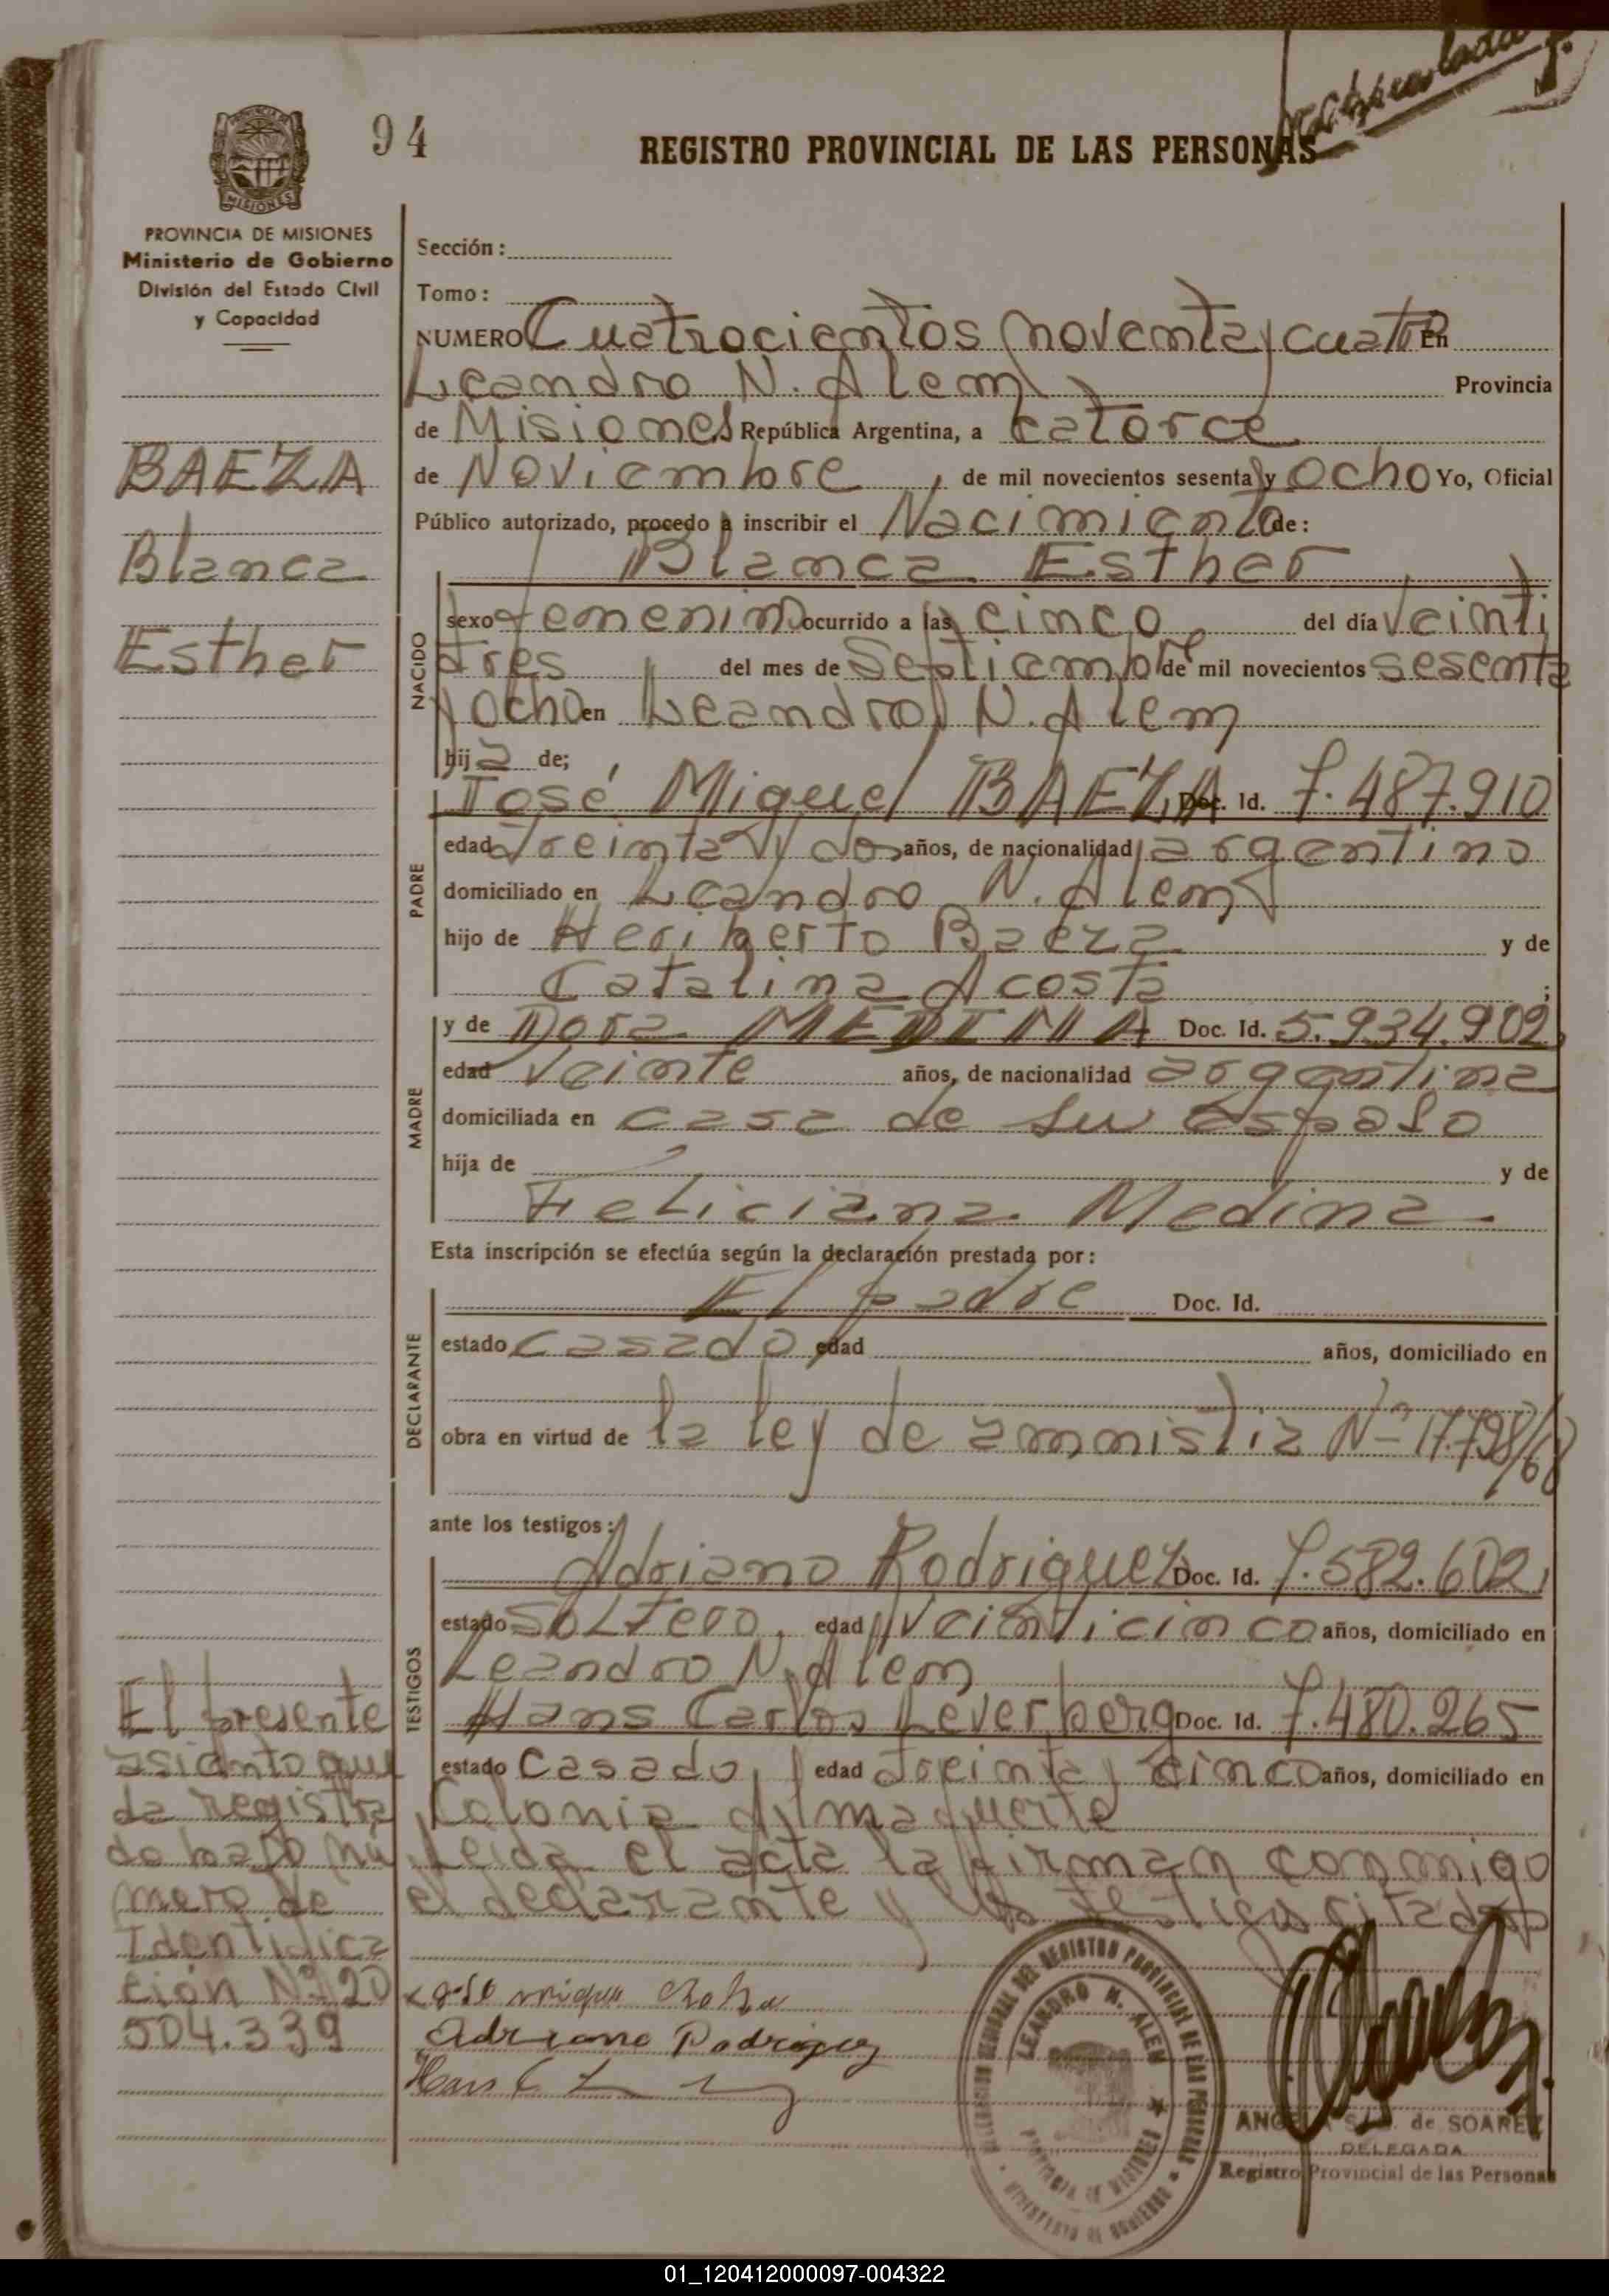 94
REGISTRO PROVINCIAL DE LAS PERSONAS
MISIONES
PROVINCIA DE MISIONES
Ministerio de Gobierno
División del Estado Civil
y Capacidad
BAEZA
Blanca
Esther
Sección:
Tomo:
NUMERO Cuatrocientos noventa y cuatro En
Leandro N. Alem Provincia
de Misiones República Argentina, a catorce
de Noviembre, de mil novecientos sesenta y ocho Yo, Oficial
Público autorizado, procedo a inscribir el Nacimiento de:
Blanca Esther
NACIDO
sexo femenino ocurrido a las cinco del día veinti
tres del mes de Septiembre de mil novecientos sesenta
y ocho en Leandro N. Alem
hija de;
PADRE
José Miguel BAEZA Doc. Id. 7.487.910
edad treinta y dos años, de nacionalidad argentino
domiciliado en Leandro N. Alem
hijo de Heriberto Baeza y de
Catalina Acosta ;
MADRE
y de Dora MEDINA Doc. Id. 5.934.902
edad veinte años, de nacionalidad argentina
domiciliada en casa de su esposo
hija de y de
Feliciana Medina
Esta inscripción se efectúa según la declaración prestada por:
DECLARANTE
El padre Doc. Id.
estado casado edad años, domiciliado en
obra en virtud de la ley de amnistia Nº 17.798/68
ante los testigos:
TESTIGOS
Adriano Rodriguez Doc. Id. 7.582.602
estado soltero, edad veinticinco años, domiciliado en
Leandro N. Alem
Hans Carlos Leverberg Doc. Id. 7.480.265
estado casado, edad treinta y cinco años, domiciliado en
Colonia Almafuerte
Leida el acta la firman conmigo
el declarante y los testigos citados
El presente
asiento que
da registra
do bajo nú
mero de
Identifica
ción Nº 20
504.339
Adriano Rodriguez
LEANDRO N. ALEM
PROVINCIA DE MISIONES
de SOAREZ
DELEGADA
Registro Provincial de las Personas
01_120412000097-004322